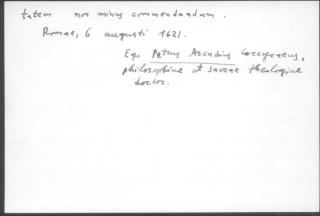 tatem non minus commendandum.
Romae, 6 augusti 1621.
Ego Petrus Arcudius Corcyraeus,
philosophiae et sacrae theologiae
doctor.